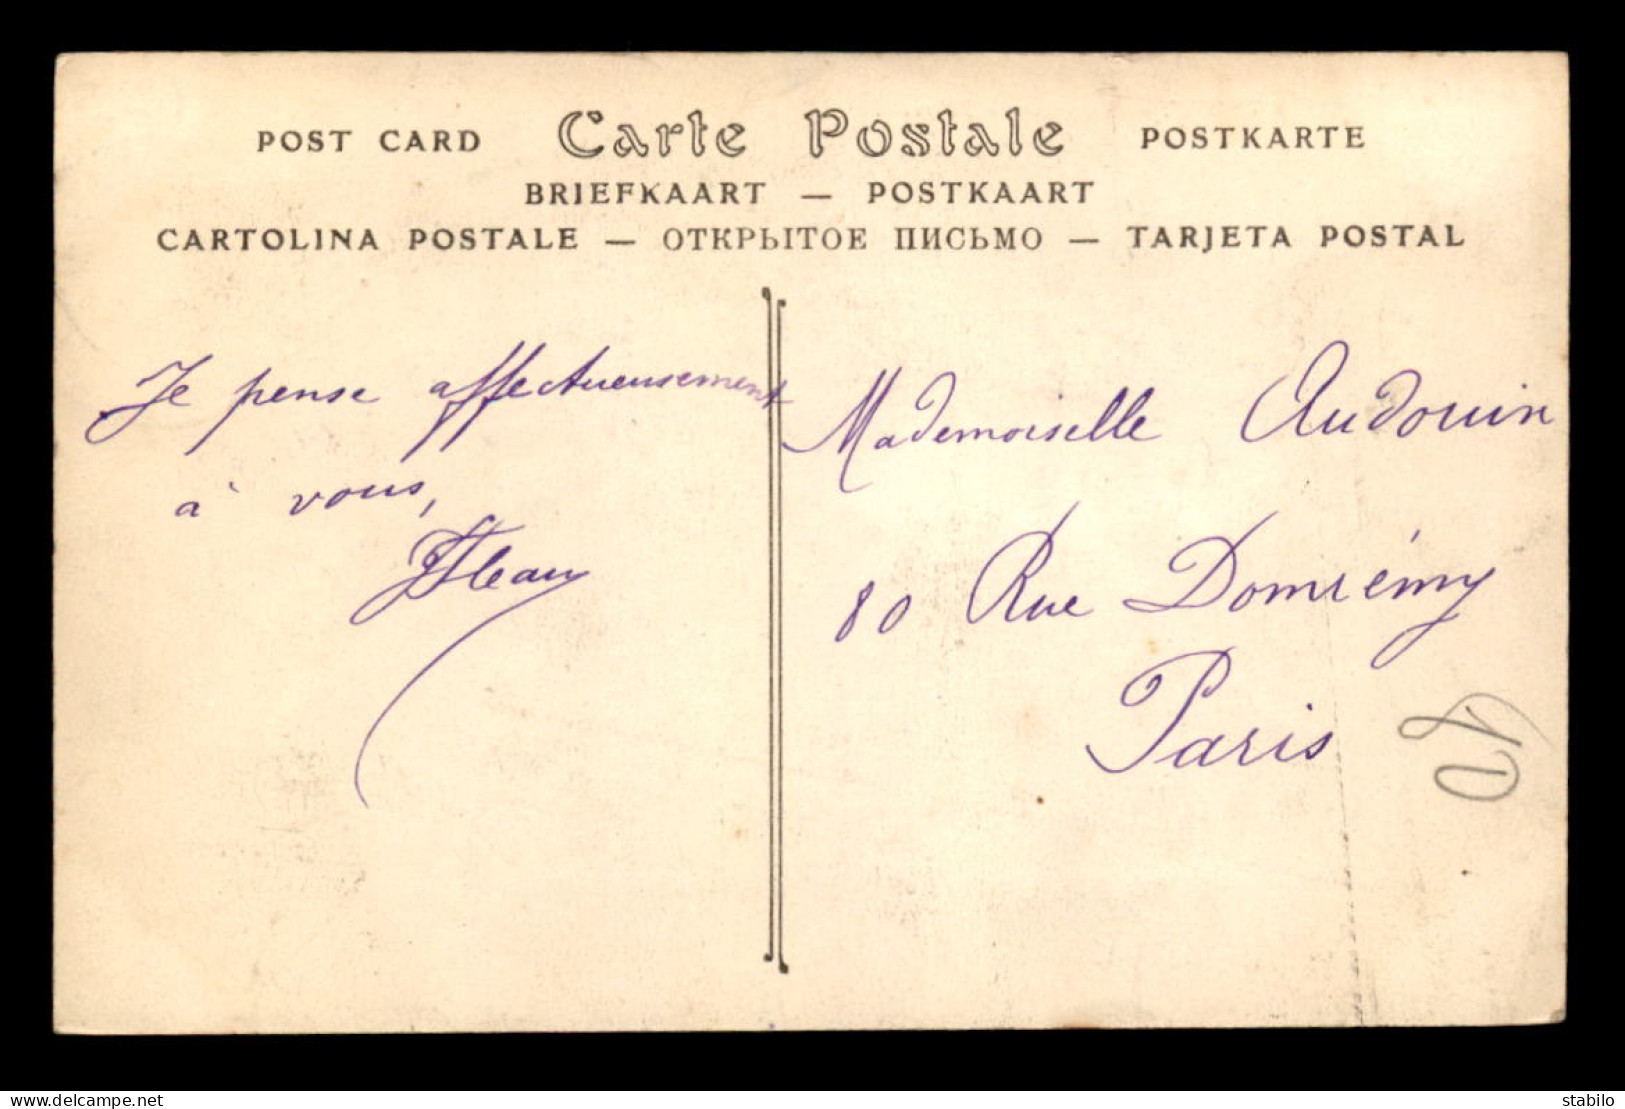 POST CARD Carte Postale POSTKARTE
BRIEFKAART — POSTKAART
CARTOLINA POSTALE — ОТКРЫТОЕ ПИСЬМО — TARJETA POSTAL
Je pense affectueusement
à vous,
Mademoiselle Audouin
80 Rue Domrémy
Paris
delcampe.net
stabilo